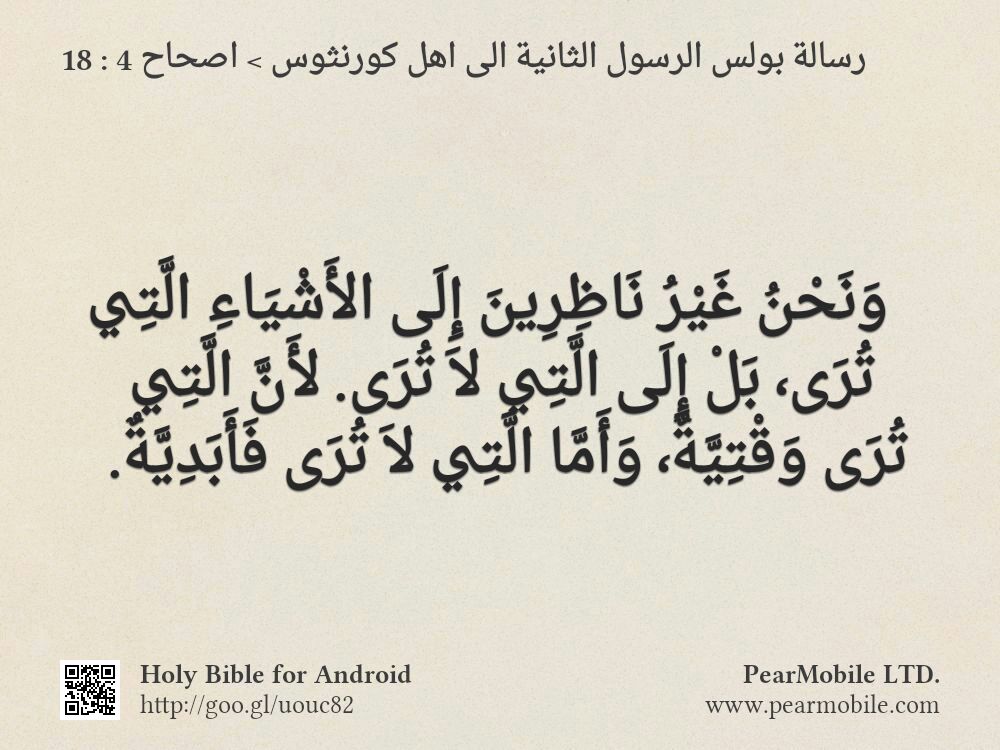 رسالة بولس الرسول الثانية الى اهل كورنثوس > اصحاح 4 : 18
وَنَحْنُ غَيْرُ نَاظِرِينَ إِلَى الأَشْيَاءِ الَّتِي
تُرَى، بَلْ إِلَى الَّتِي لاَ تُرَى. لأَنَّ الَّتِي
تُرَى وَقْتِيَّةٌ، وَأَمَّا الَّتِي لاَ تُرَى فَأَبَدِيَّةٌ.
Holy Bible for Android
http://goo.gl/uouc82
PearMobile LTD.
www.pearmobile.com